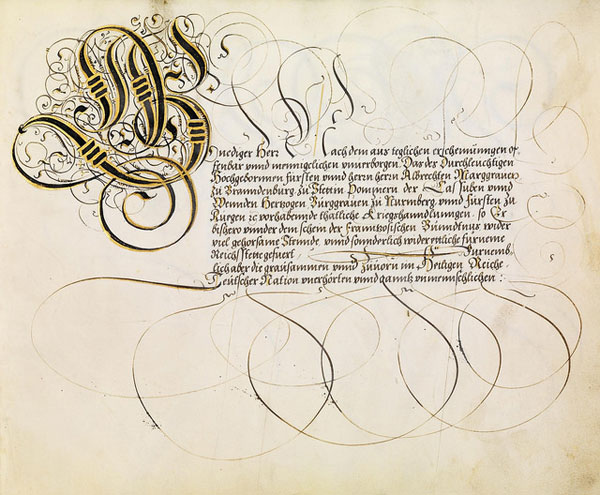 Gnediger Herr Nach dem aus teglichen erscheinungen of
fenbar vnnd menniglichen vnuerborgen. Das des Durchleuchtigen
Hochgebornnen fürsten vnnd herrn herrn Albrechten Marggrauen
zu Branndenburg zu Stettin Pommern der Cassuben vnnd
Wennden Hertzogen Burggrauen zu Nurmberg vnnd fürsten zu
Rugen ꝛc vorhabennde thätliche Kriegshanndlungen. so Er
bishero vnnder dem schein der Franntzosischen Bünndtnus wider
viel gehorsame Stennde, vnnd sonnderlich wider etliche fürneme
Reichsstennde gefuert Fürnemb
lich aber die grausammen vnnd zuuorn im Heiligen Reiche
Teutscher Nation vnerhörten vnnd ganntz vnmennschlichen :